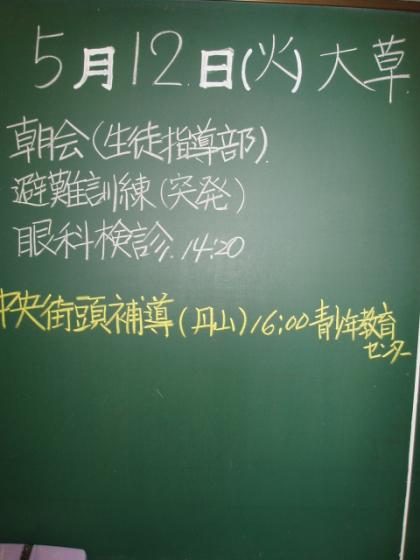 5月12日(火)大草
朝会(生徒指導部)
避難訓練(突発)
眼科検診.14:20
中央街頭補導(丹山)16:00青少年教育
センター